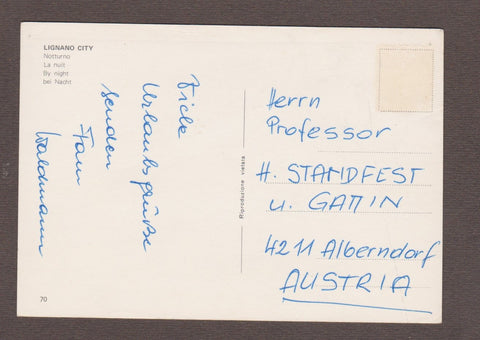 LIGNANO CITY
Notturno
La nuit
By night
bei Nacht
Viele
Urlaubsgrüße
senden
Fam
Waldmann
Riproduzione vietata
Herrn
Professor
H. STANDFEST
u. GATTIN
4211 Alberndorf
AUSTRIA
70